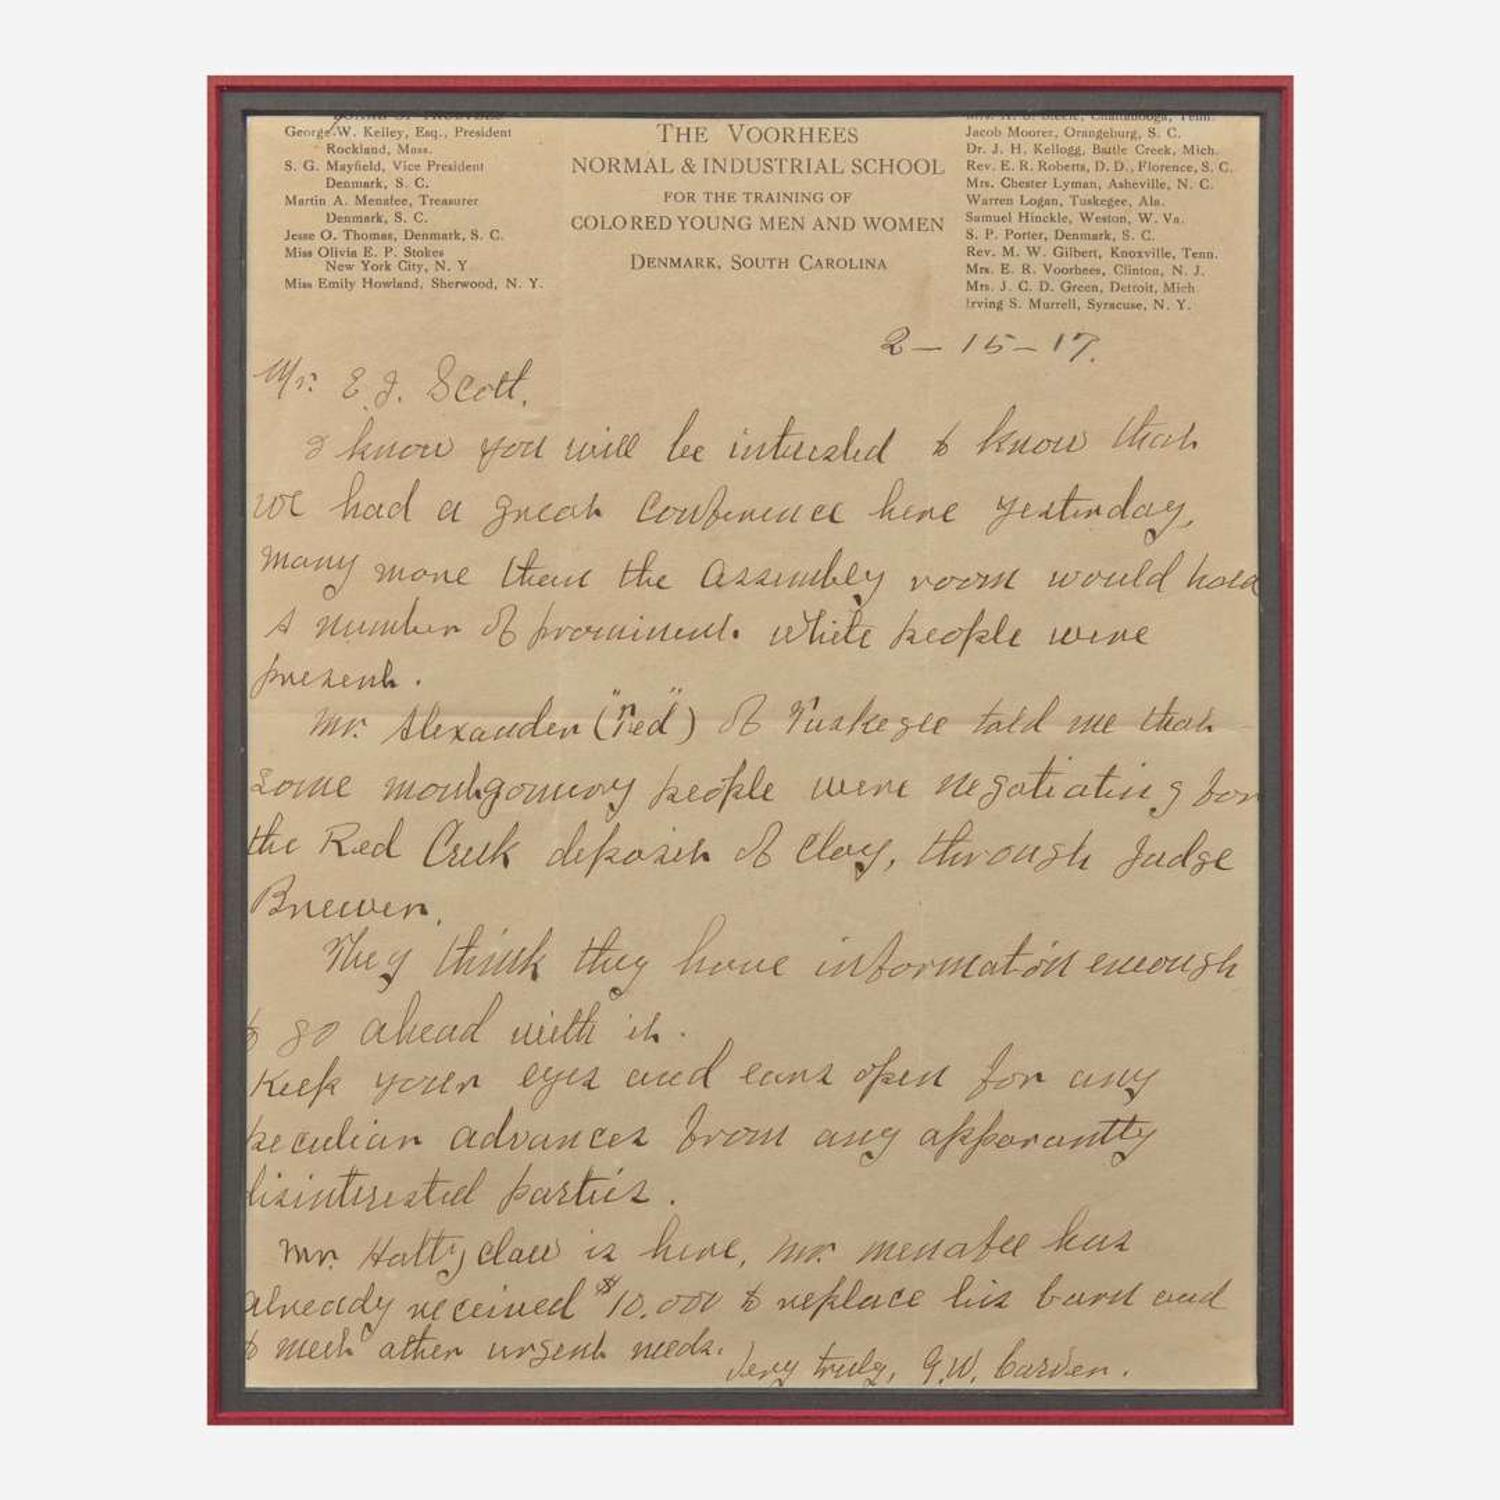 BOARD OF TRUSTEES
George W. Kelley, Esq., President
Rockland, Mass.
S. G. Mayfield, Vice President
Denmark, S. C.
Martin A. Menafee, Treasurer
Denmark, S. C.
Jesse O. Thomas, Denmark, S. C.
Miss Olivia E. P. Stokes
New York City, N. Y
Miss Emily Howland, Sherwood, N. Y.
THE VOORHEES
NORMAL & INDUSTRIAL SCHOOL
FOR THE TRAINING OF
COLORED YOUNG MEN AND WOMEN
DENMARK, SOUTH CAROLINA
Steele, Chattanooga, Tenn.
Jacob Moorer, Orangeburg, S. C.
Dr. J. H. Kellogg, Battle Creek, Mich.
Rev. E. R. Roberts, D. D., Florence, S. C.
Mrs. Chester Lyman, Asheville, N. C.
Warren Logan, Tuskegee, Ala.
Samuel Hinckle, Weston, W. Va.
S. P. Porter, Denmark, S. C.
Rev. M. W. Gilbert, Knoxville, Tenn.
Mrs. E. R. Voorhees, Clinton, N. J.
Mrs. J. C. D. Green, Detroit, Mich
Irving S. Murrell, Syracuse, N. Y.
2-15-17.
Mr. E. J. Scott.
I know you will be interested to know that
we had a great conference here yesterday,
many more than the assembly room would hold
A number of prominent. white people were
present.
Mr. Alexander ("red") of Tuskegee told me that
some montgomery people were negotiating for
the Red Creek deposit of clay, through Judge
Brewer.
They think they have information enough
to go ahead with it.
Keep your eyes and ears open for any
peculiar advances from any apparantly
disinterested parties.
Mr. Holtzclaw is here, Mr. menafee has
already received $10.000 to replace his barn and
to meet other urgent needs.
Very truly, G.W. Carver.